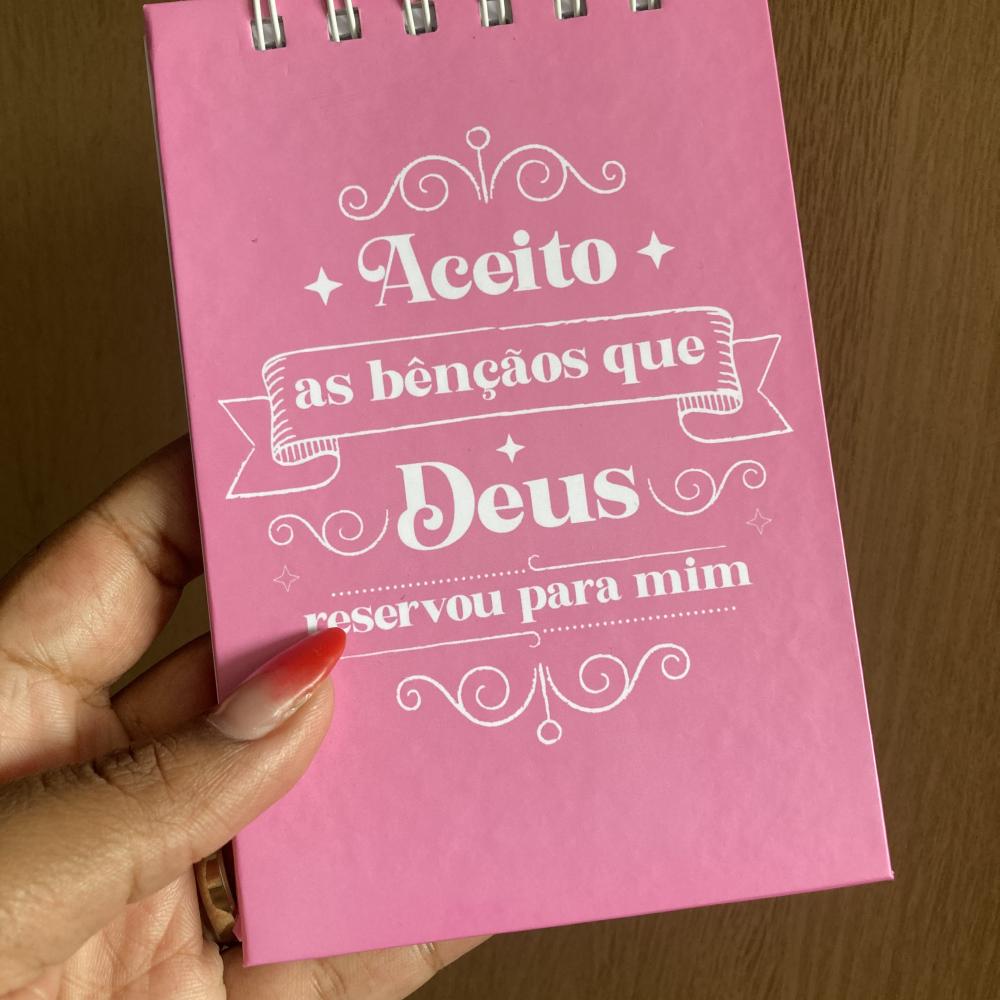 Aceito
as bênçãos que
Deus
reservou para mim